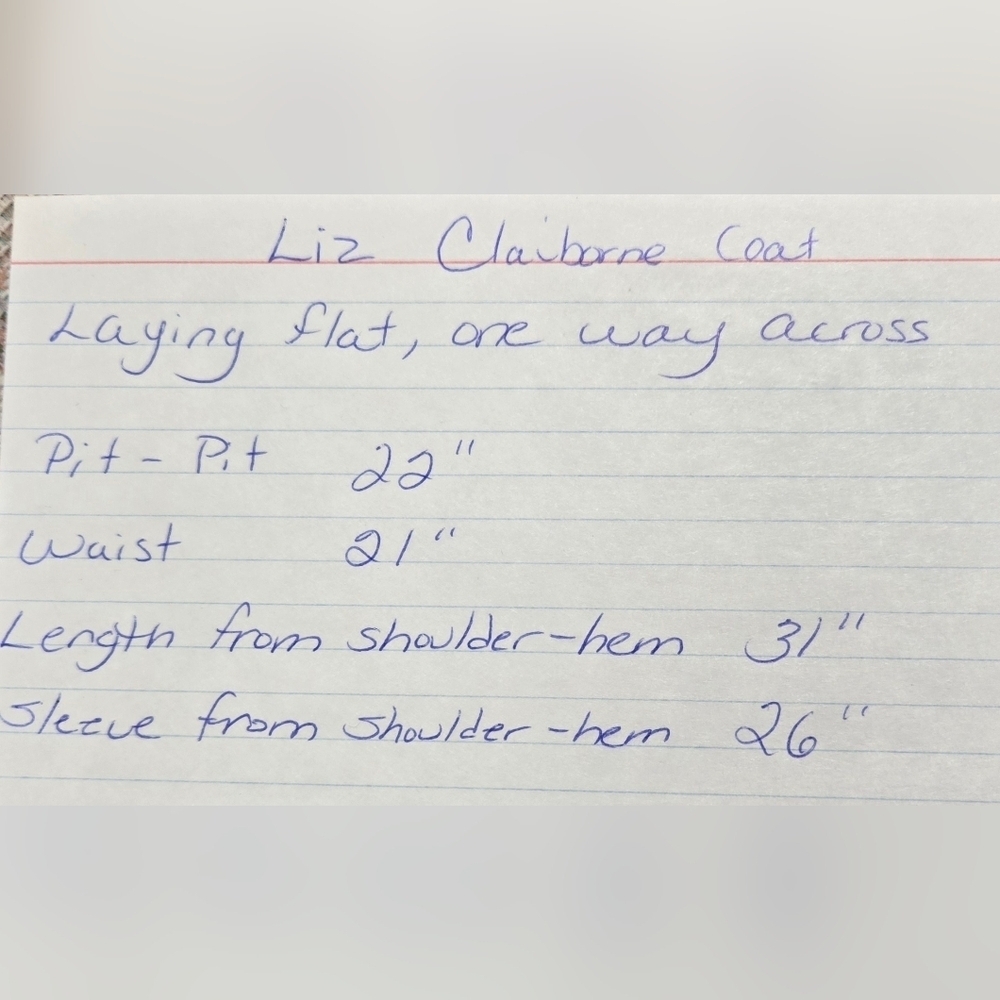 Liz Claiborne Coat
Laying flat, one way across
Pit - Pit 22"
Waist 21"
Length from shoulder-hem 31"
Sleeve from shoulder-hem 26"